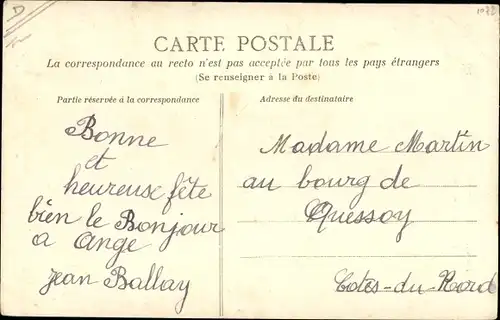 D
1073
CARTE POSTALE
La correspondance au recto n'est pas acceptée par tous les pays étrangers
(Se renseigner à la Poste)
Partie réservée à la correspondance
Adresse du destinataire
Bonne
et
heureuse fête
bien le Bonjour
a Ange
jean Ballay
Madame Martin
au bourg de
Quessoy
Cotes-du-Nord